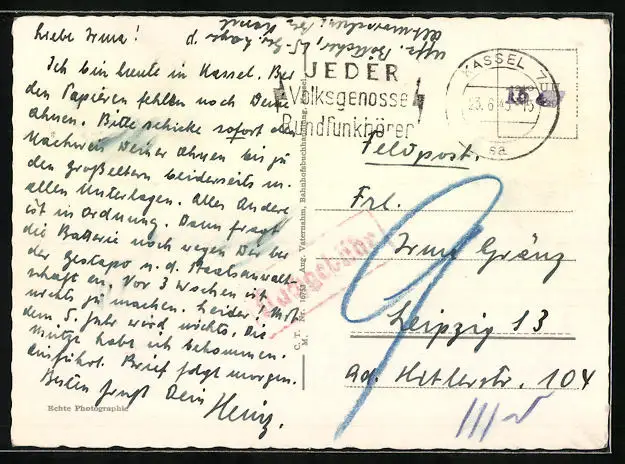 Liebe Irma!
Ich bin heute in Kassel. Bei
den Papieren fehlen noch Deine
Ahnen. Bitte schicke sofort
Nachweis Deiner Ahnen bis zu
den Großeltern beiderseits m.
allen Unterlagen. Alles Andere
ist in Ordnung. Dann fragt
die Batterie noch wegen Dir bei
der Gestapo u. d. Staatsanwalt-
schaft an. Vor 3 Wochen ist
nichts zu machen. Leider! Mit
dem 5. Jahr wird nichts. Die
Mütze habe ich bekommen.
Ausführl. Brief folgt morgen.
Dein
Heinz.
Echte Photographie
C. T. Nr. 10753 Aug. Vaternahm, Bahnhofsbuchhandlung, Kassel
M.
Uffz. Böttcher,
JEDER
Volksgenosse
Rundfunkhörer
KASSEL 7
23.6.43
sa
Feldpost.
Nachgebühr
Frl.
Irma Gränz
9
Leipzig 13
Ad. Hitlerstr. 104